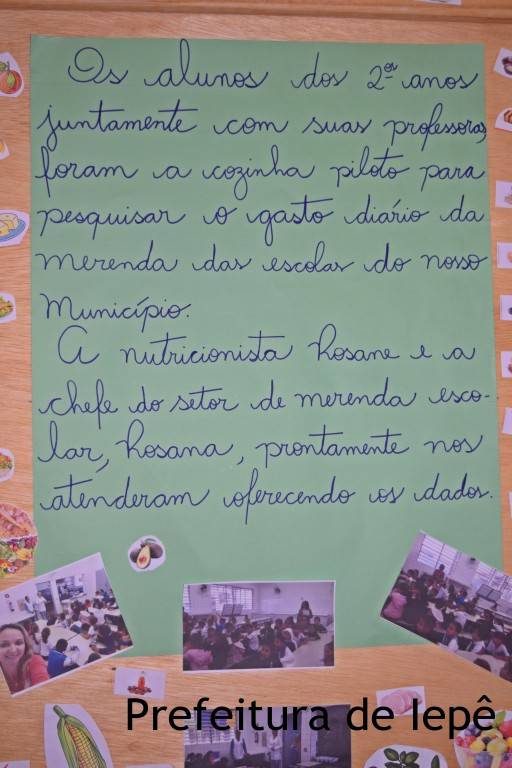 Os alunos dos 2ºs anos
juntamente com suas professoras,
foram a cozinha piloto para
pesquisar o gasto diário da
merenda das escolas do nosso
Município.
A nutricionista Rosane e a
chefe do setor de merenda esco-
lar, Rosana, prontamente nos
atenderam oferecendo os dados.
Prefeitura de Iepê